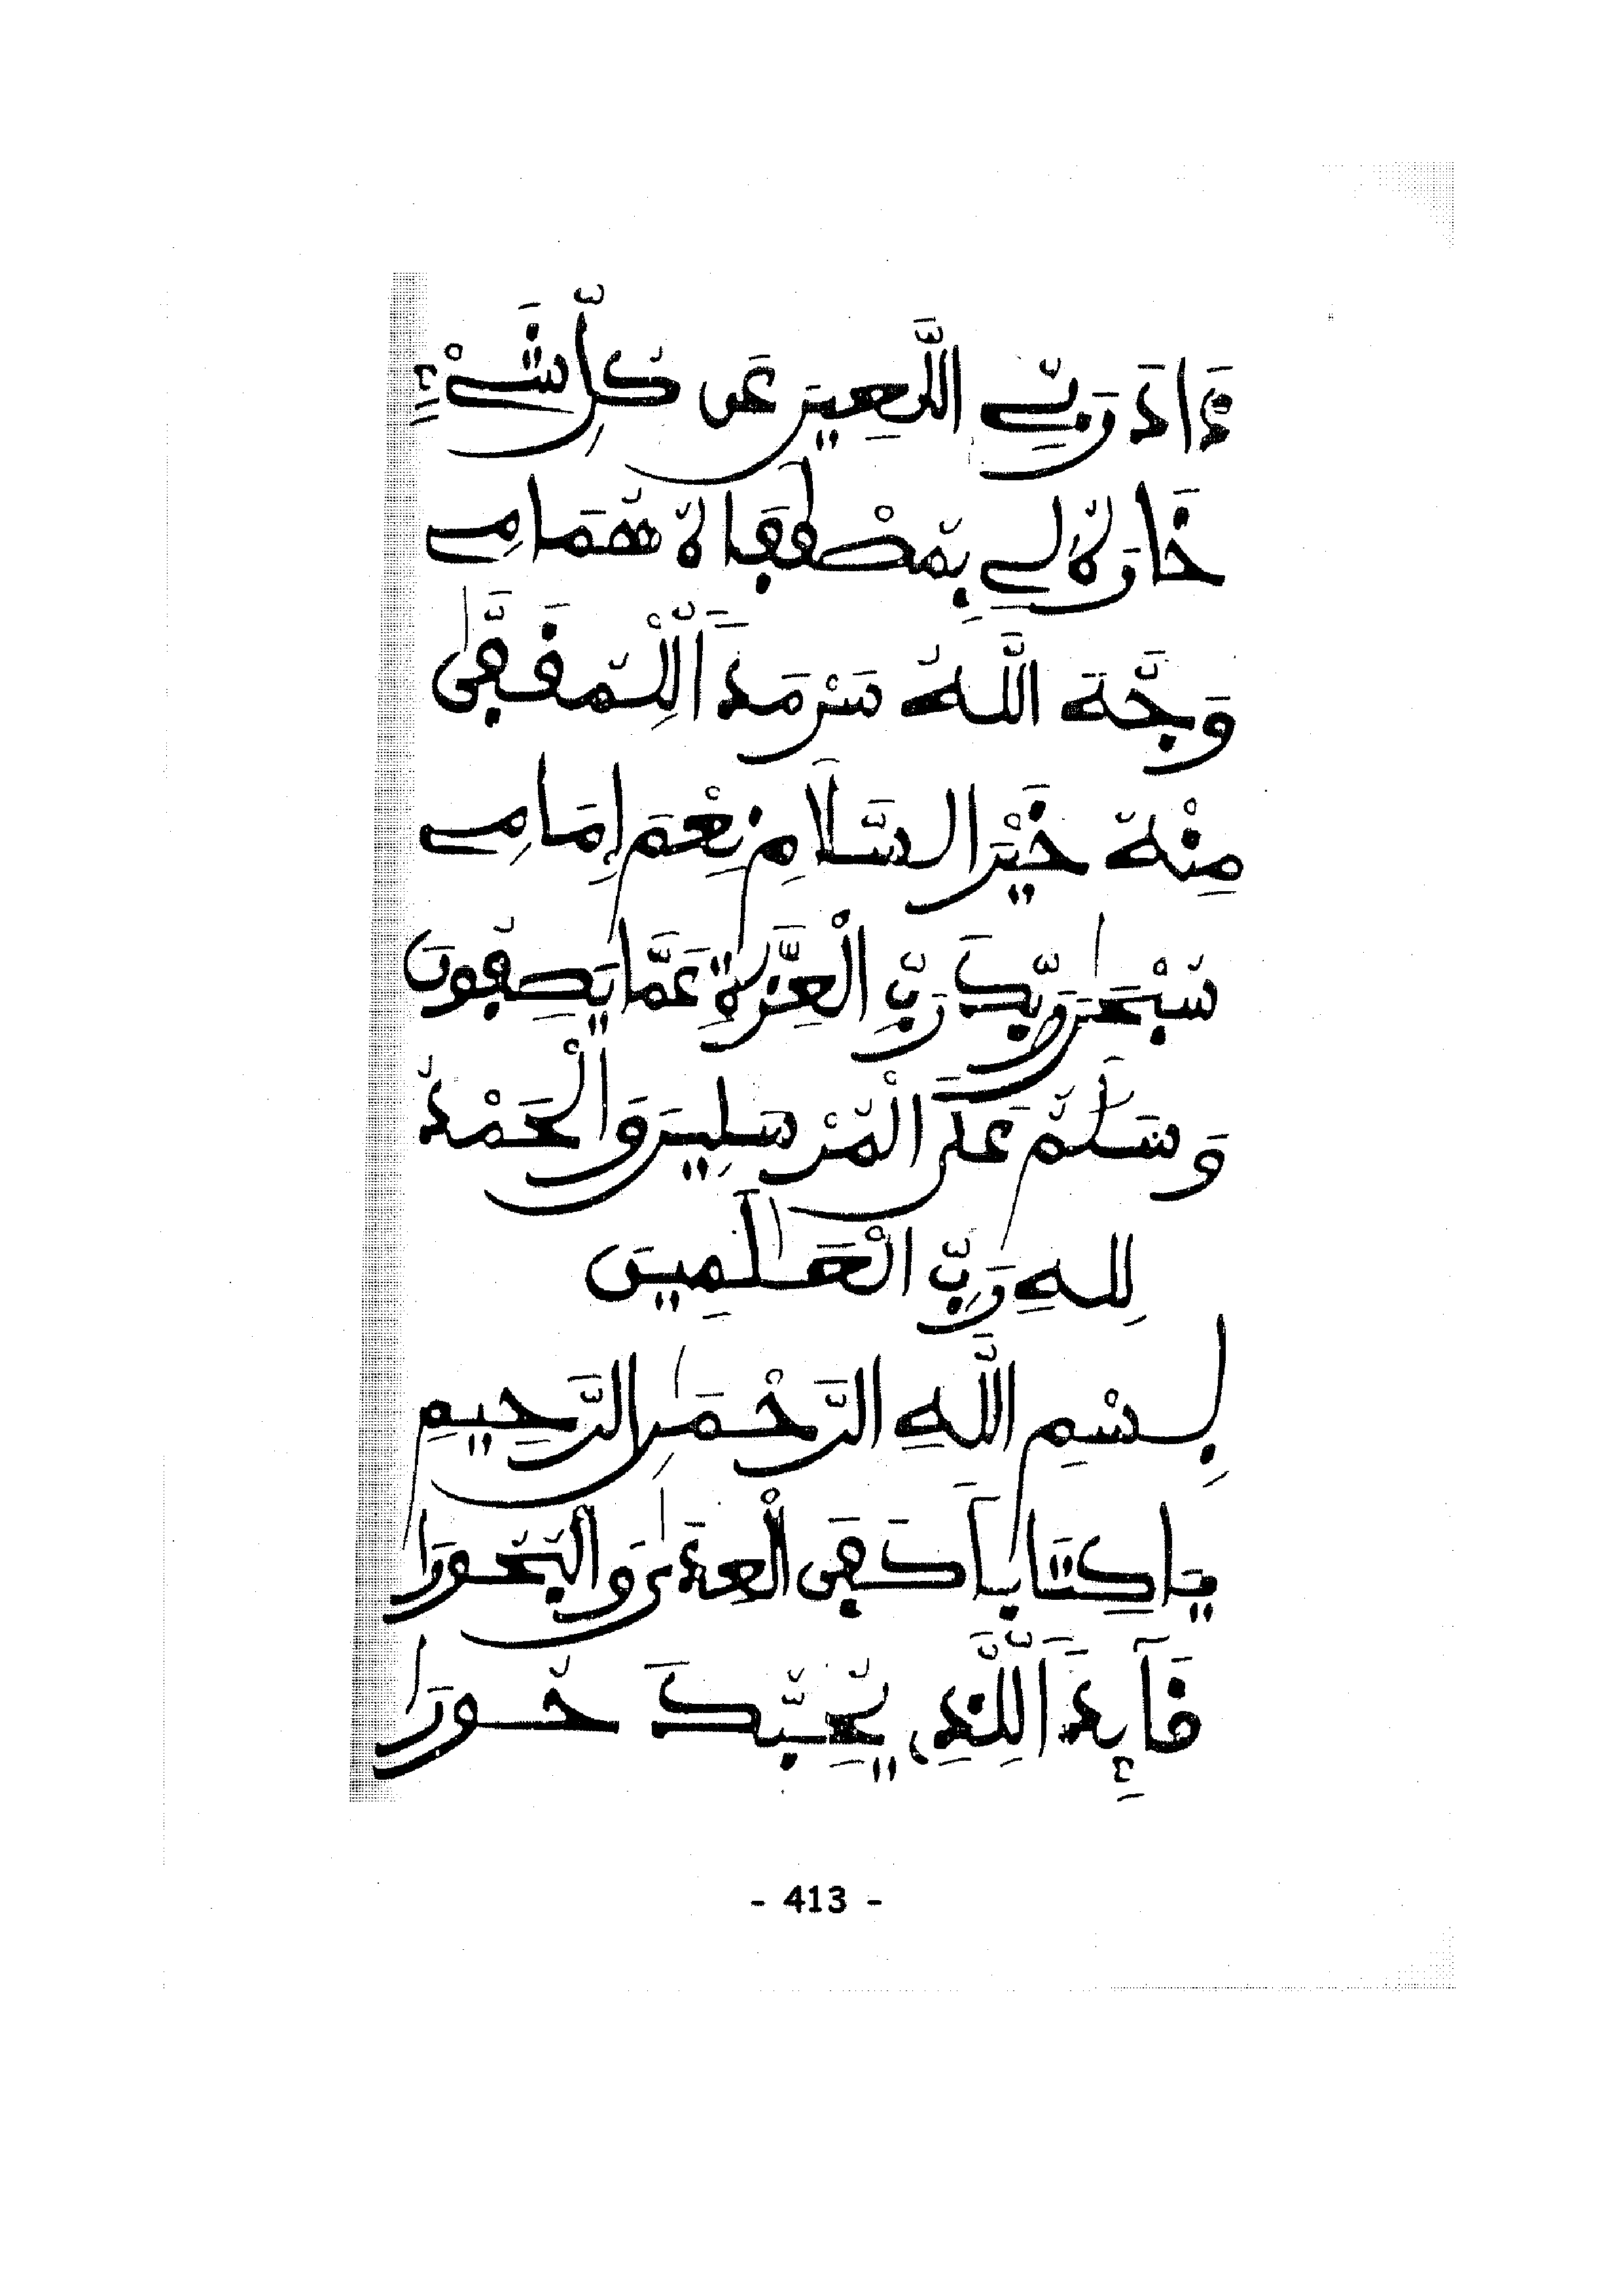 ذَادَ رَبِّي اللَّعِينَ عَن كُلِّ شَيْءٍ
خَارَهُ لِي بِمُصْطَفَاهُ هُمَامِي
وَجَّهَ اللَّهُ سَرْمَدًا لِلْمُفَقَّى
مِنْهُ خَيْرَ السَّلَامِ نِعْمَ إِمَامِي
سُبْحَٰنَ رَبِّكَ رَبِّ الْعِزَّةِ عَمَّا يَصِفُونَ
وَسَلَٰمٌ عَلَى الْمُرْسَلِينَ وَالْحَمْدُ
لِلهِ رَبِّ الْعَٰلَمِينَ
بِسْمِ اللَّهِ الرَّحْمَٰنِ الرَّحِيمِ
يَا كِتَابًا كَفَى الْعِدَىٰ وَالْبُحُورَا
قَآئِدًا لِلَّذِي يُحِبُّكَ حُورَا
- 413 -